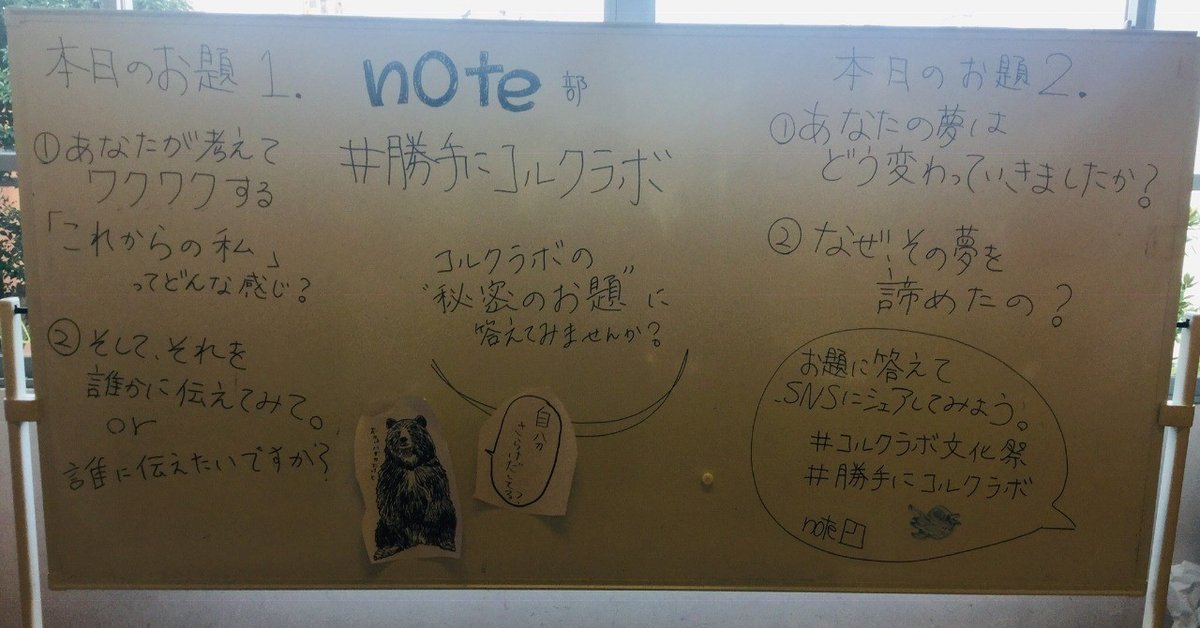 本日のお題 1.
①あなたが考えて
ワクワクする
「これからの私」
ってどんな感じ?
②そして、それを
誰かに伝えてみて。
or
誰に伝えたいですか?
note 部
#勝手にコルクラボ
コルクラボの
"秘密のお題"に
答えてみませんか?
自分
さらけだしてる?
本日のお題2.
①あなたの夢は
どう変わっていきましたか?
②なぜ、その夢を
諦めたの?
お題に答えて
SNSにシェアしてみよう。
#コルクラボ文化祭
#勝手にコルクラボ
note